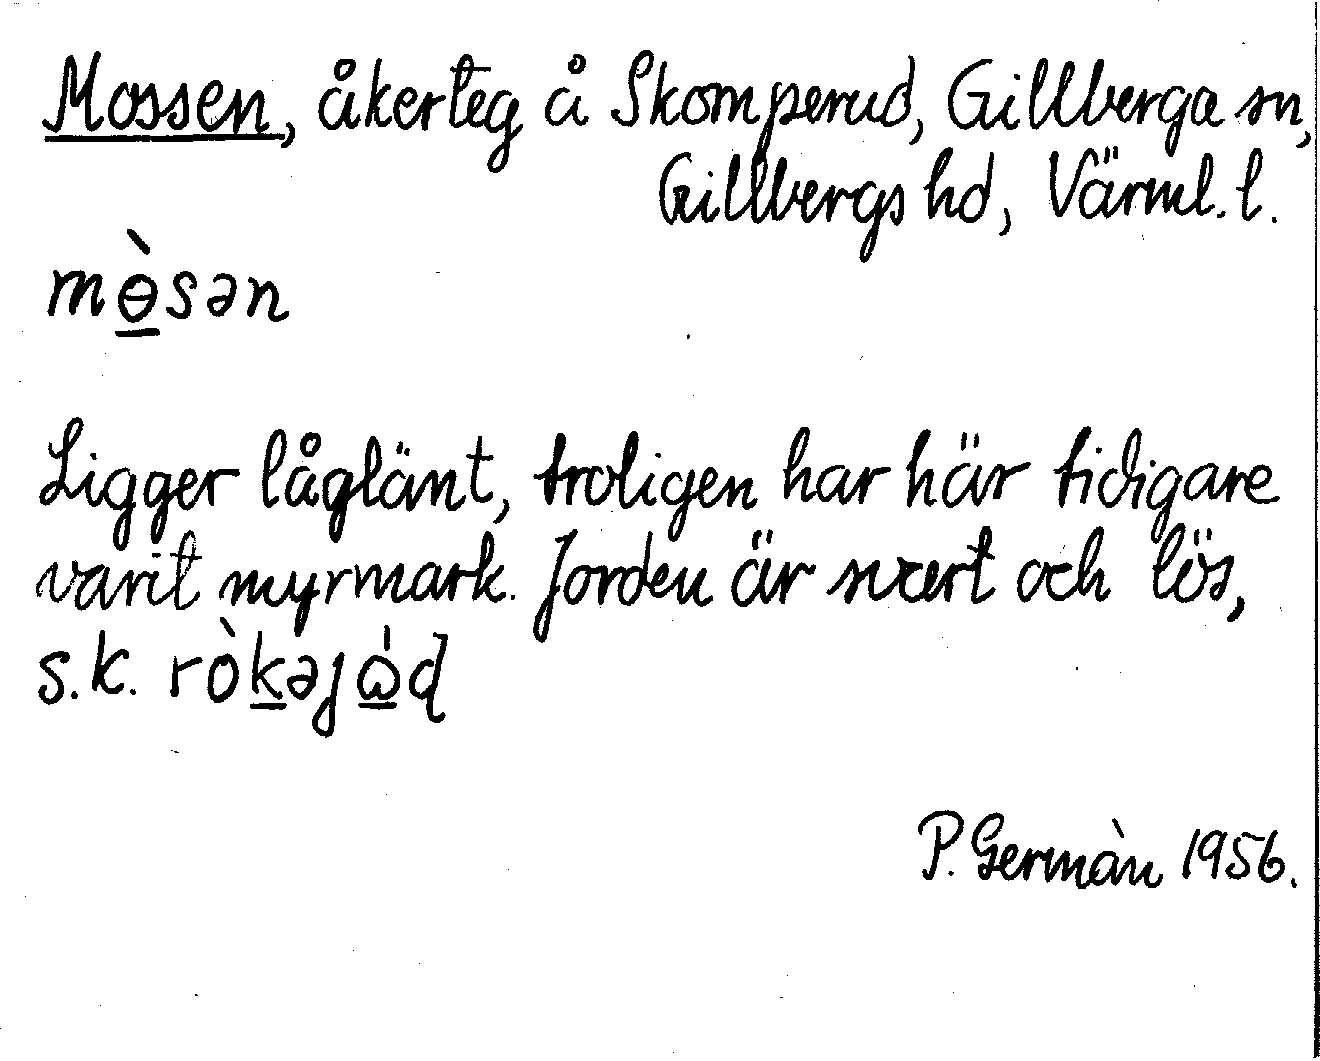 Mossen, åkerteg å Skomperud, Gillberga sn,
Gillbergs hd, Värml. l.
mɵ̲̀sən
Ligger låglänt, troligen har här tidigare
varit myrmark. Jorden är svart och lös,
s.k. ròk̲əȷɷ̲́ɖ
P. Germàn 1956.